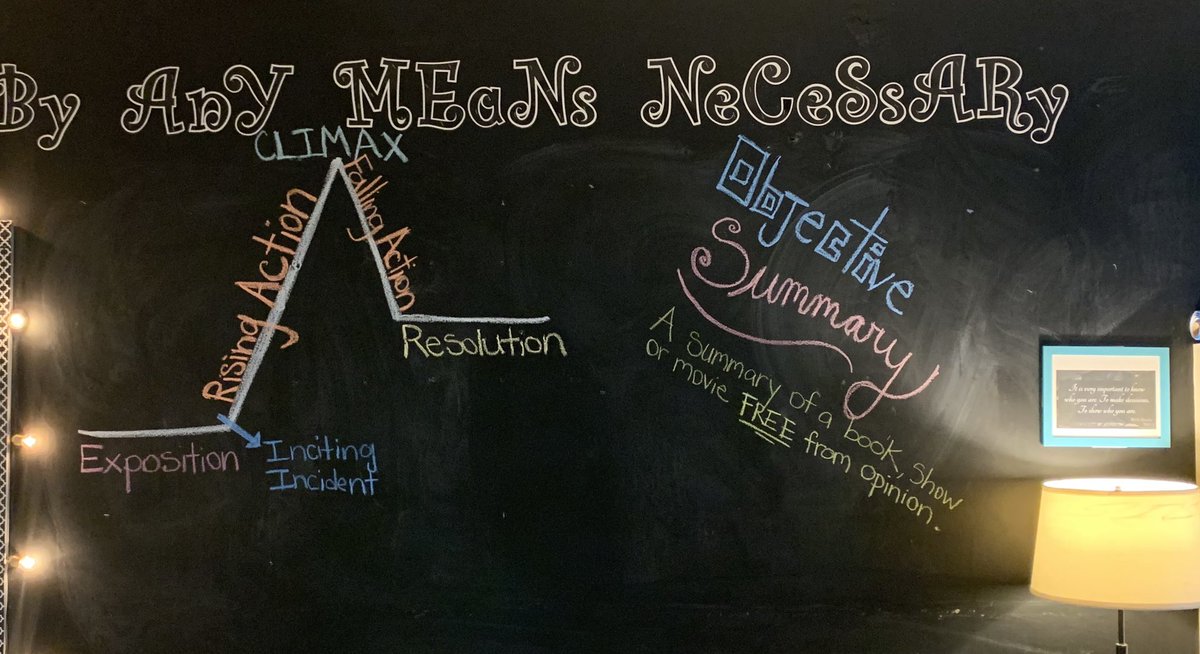 By AnY MEaNs NeCeSsARy
CLIMAX
Rising Action
Falling Action
Resolution
Exposition
Inciting
Incident
Objective
Summary
A summary of a book, show
or movie FREE from opinion.
It is very important to know
who you are. To make decisions.
To show who you are.